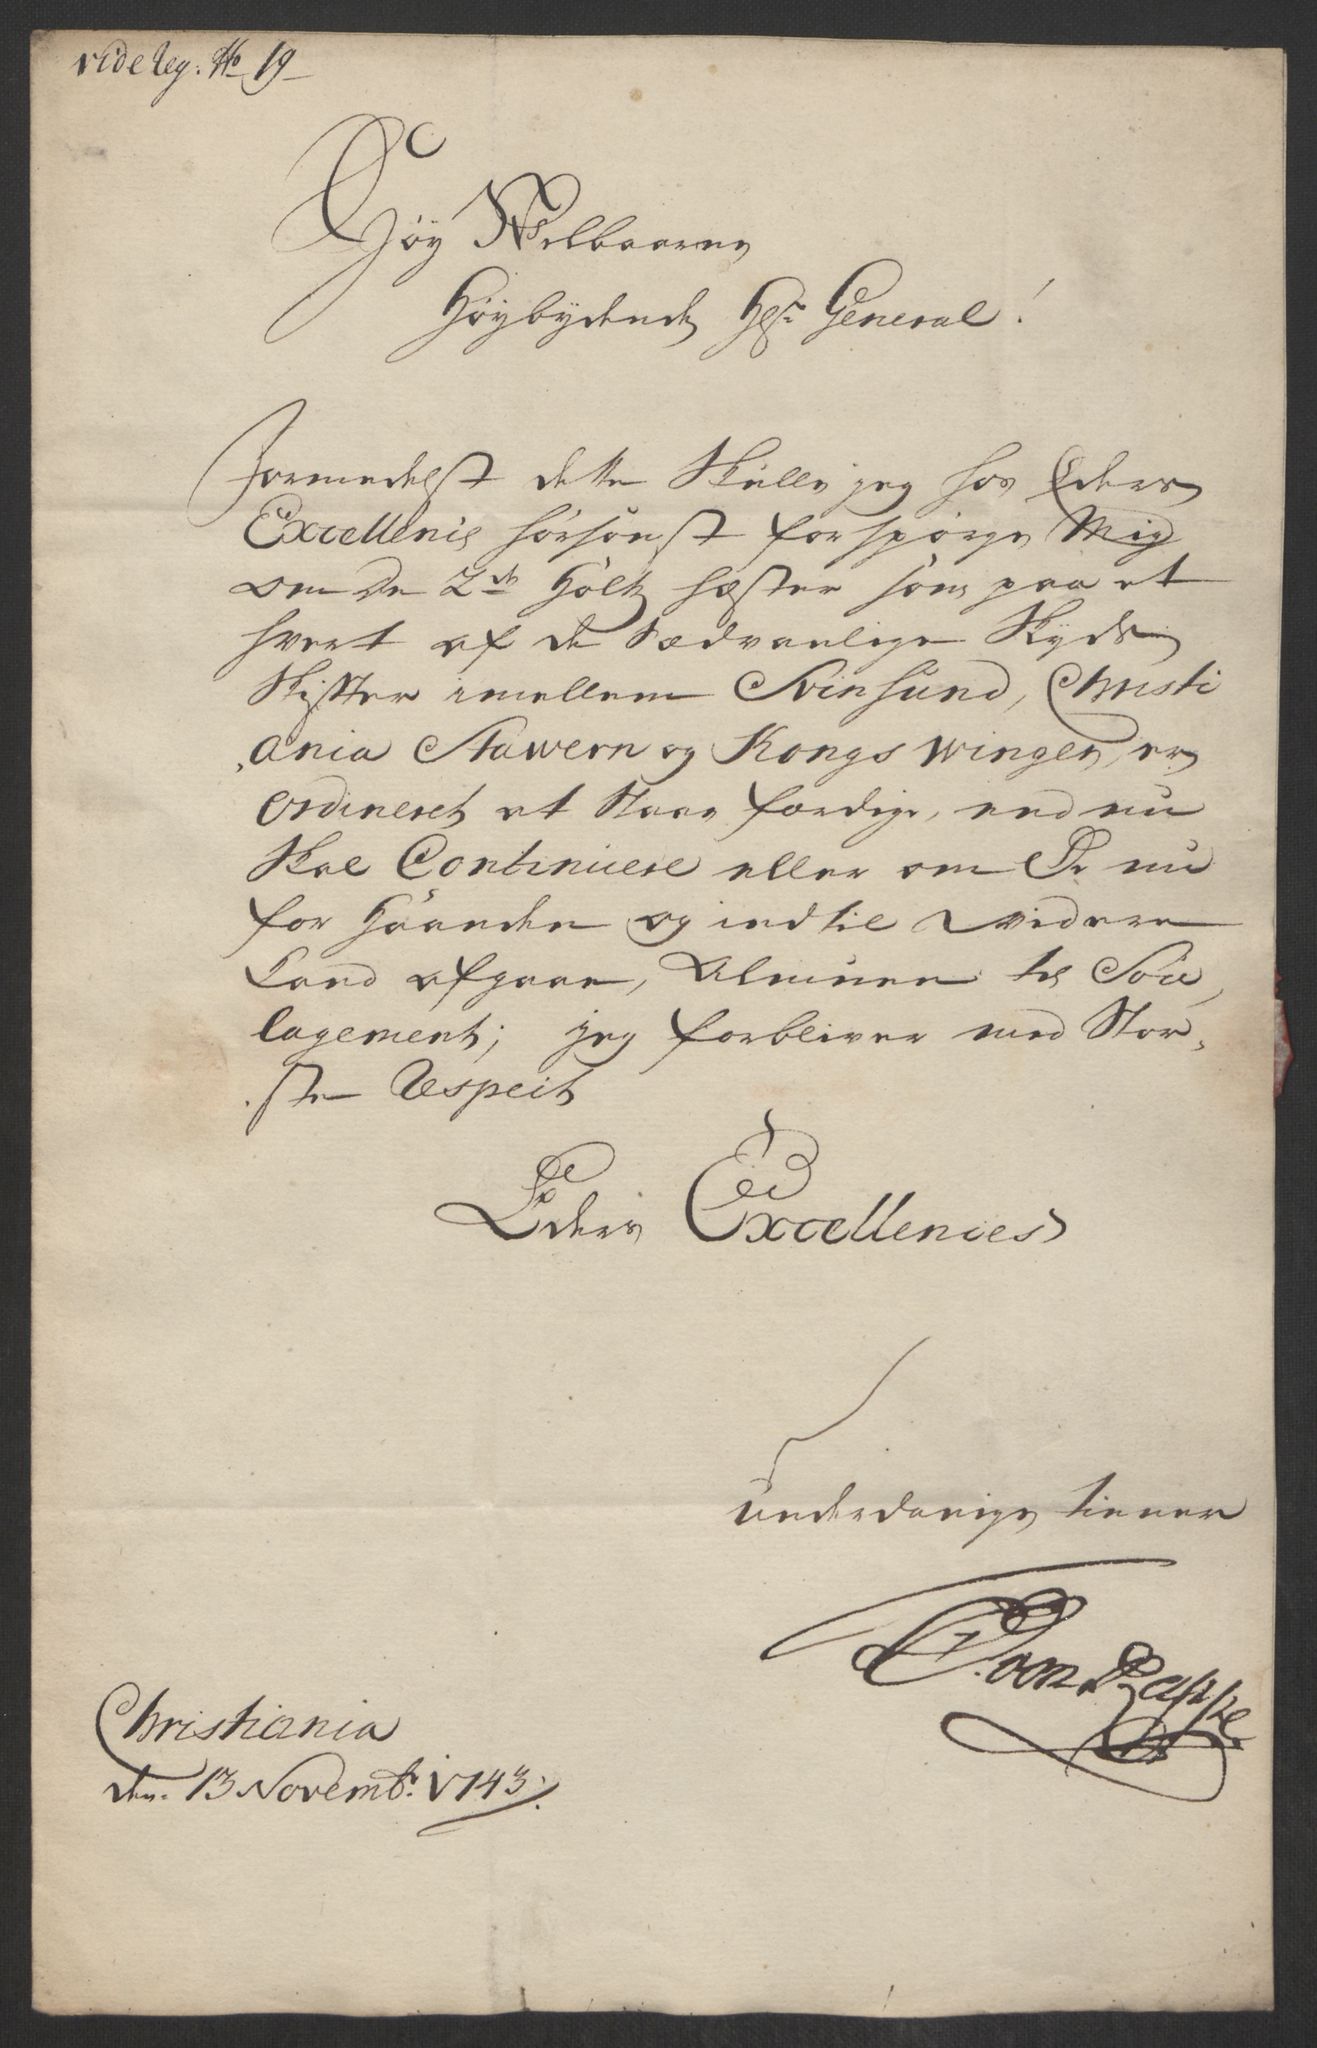 vide Reg. No 19
Høy Welbaarne
Høybydende Hr General!
Formedelst dette Skulle jeg hos Eders
Excellence forspørge Mig
om De 2de hæster som paa et
hvert af de Sædvanlige Skyds
Skiffter imellem Svinsund, Christi
ania Stawern og Kongswinger, er
ordineret at Staae færdige, end nu
Skal Continuere eller om De nu
for Haanden og indtil Widere
Kand afgaae, Almuen til Sou
lagement; jeg forbliver med Stør
ste Respect
Eders Excellences
underdanige tiener
von Rappe
Christiania
den. 13 Novembr. 1743.